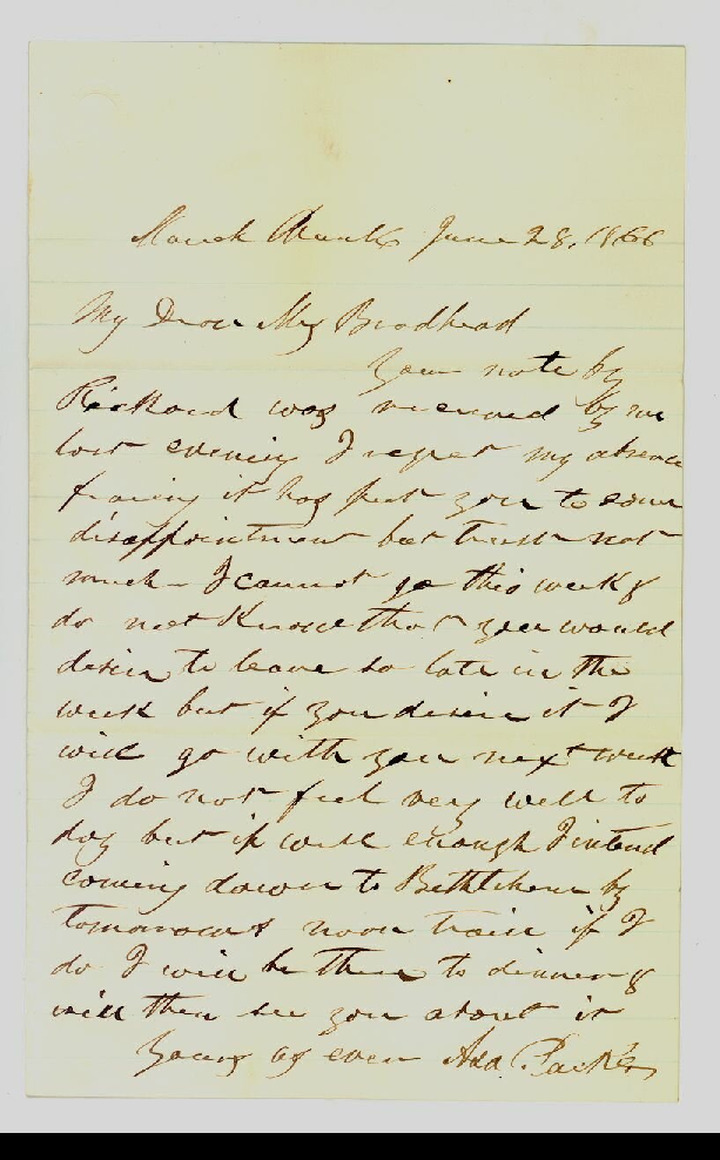 Mauch Chunk June 28, 1866
My Dear Mrs Brodhead
Your note by
Rickard was received by me
last evening I regret my absence
fearing it has put you to some
disappointment but trust not
much - I cannot go this week &
do not Know that you would
desire to leave so late in the
week but if you desire it I
will go with you next week
I do not feel very well to
day but if well enough I intend
coming down to Bethlehem by
tomorrows noon train if I
do I will be there to dinner &
will then see you about it
Yours as ever Asa Packer